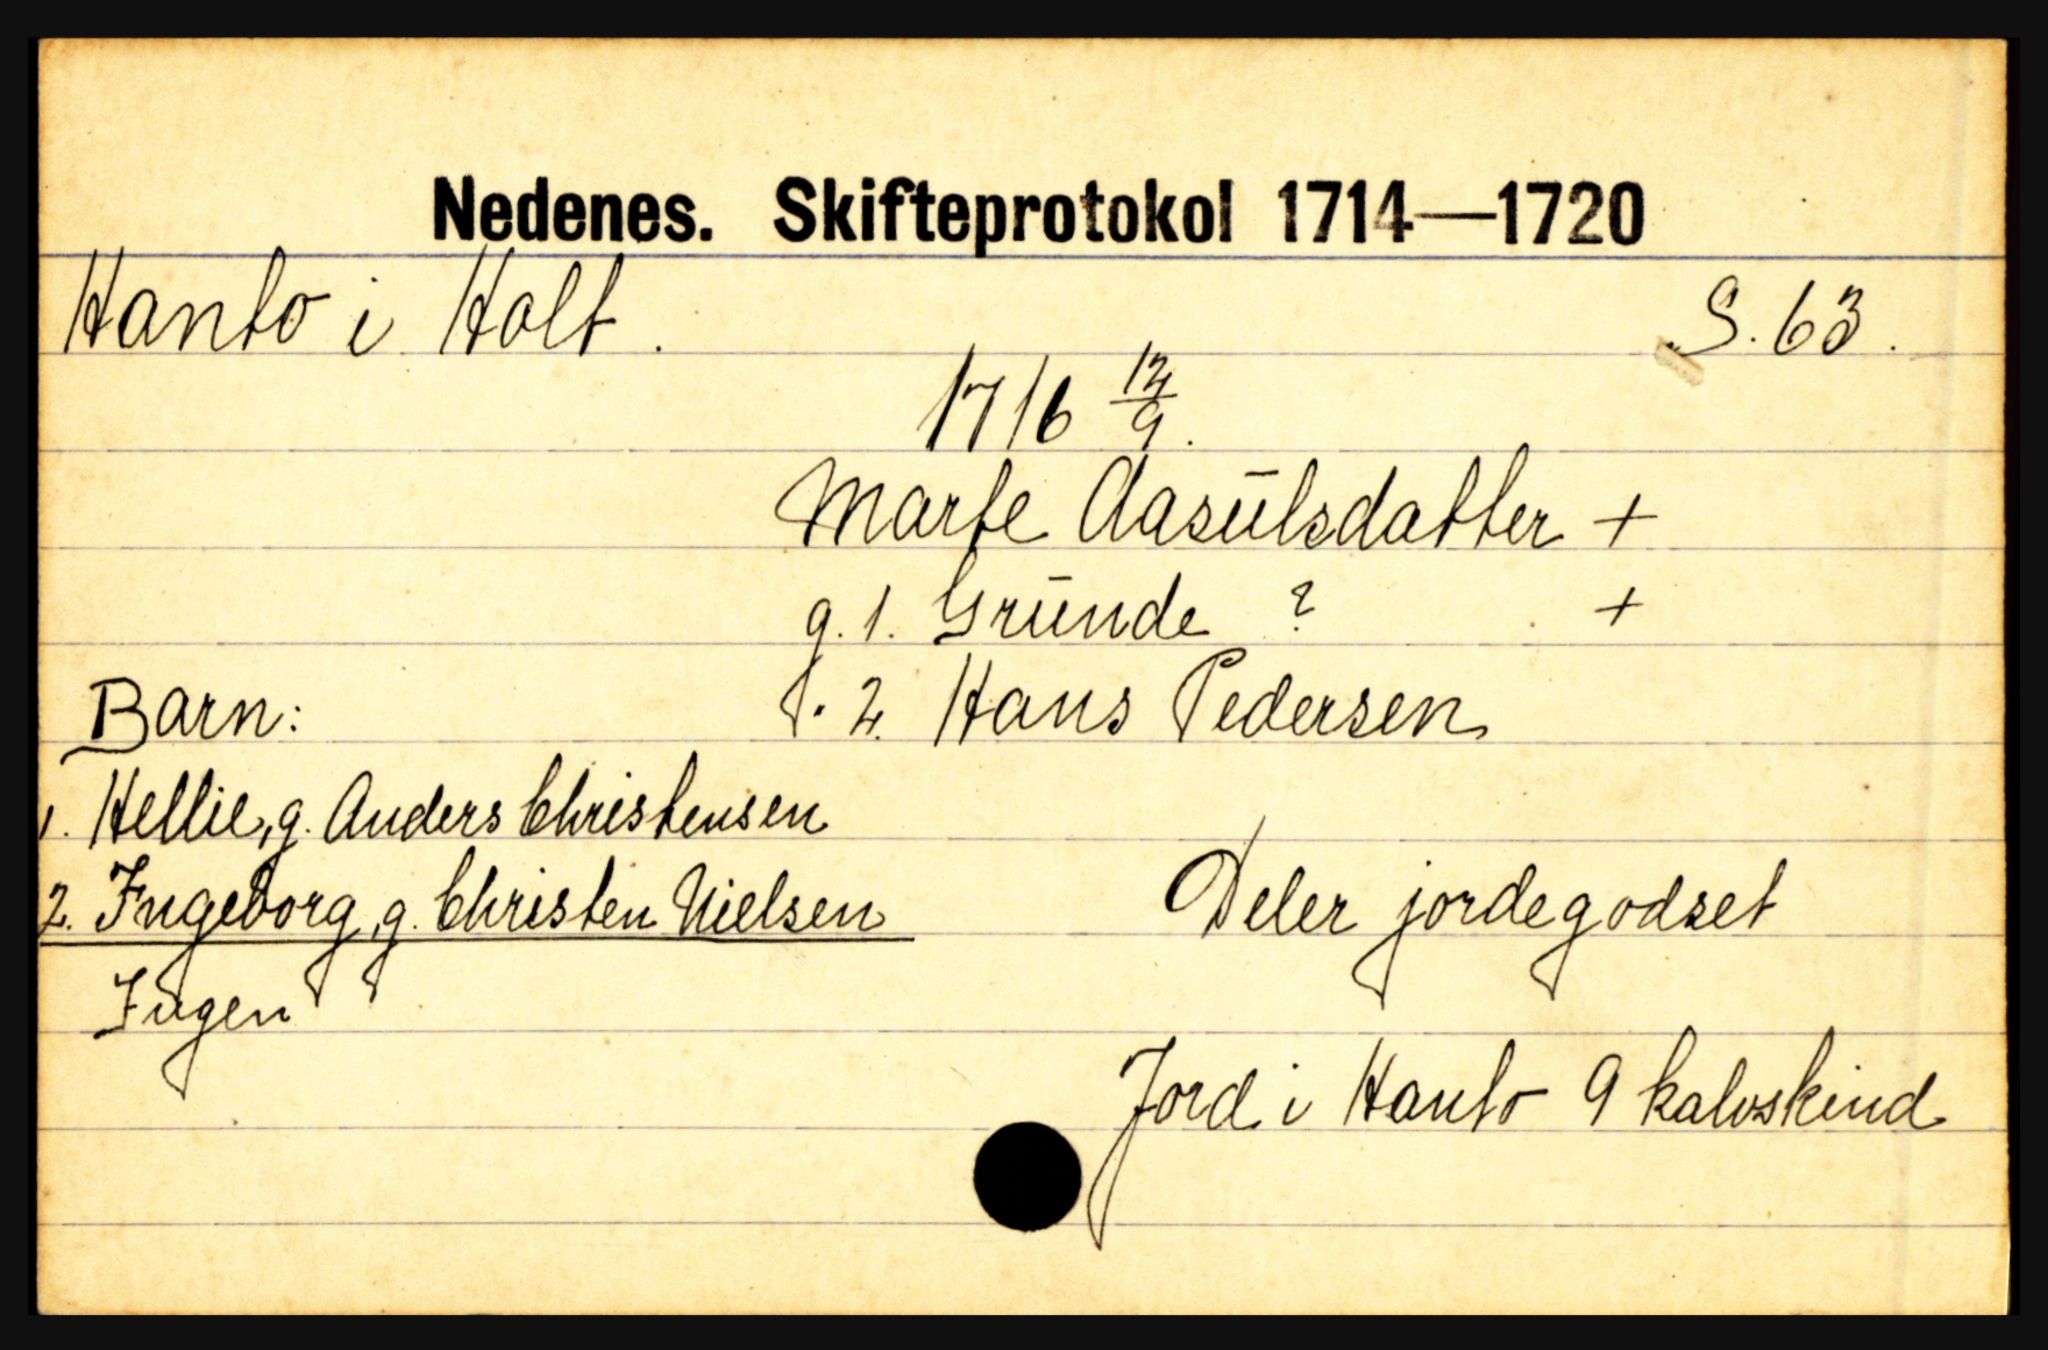 Nedenes. Skifteprotokol 1714—1720
Hanto i Holt. S. 63.
1716 12/9.
Marte Aasūlsdatter +
g. 1. Grūnde ? +
Barn: g. 2. Hans Pedersen
1. Hellie, g. Anders Christensen
2. Ingeborg, g. Christen Nielsen Deler jordegodset
Ingen
Jord i Hanto 9 kalvskind